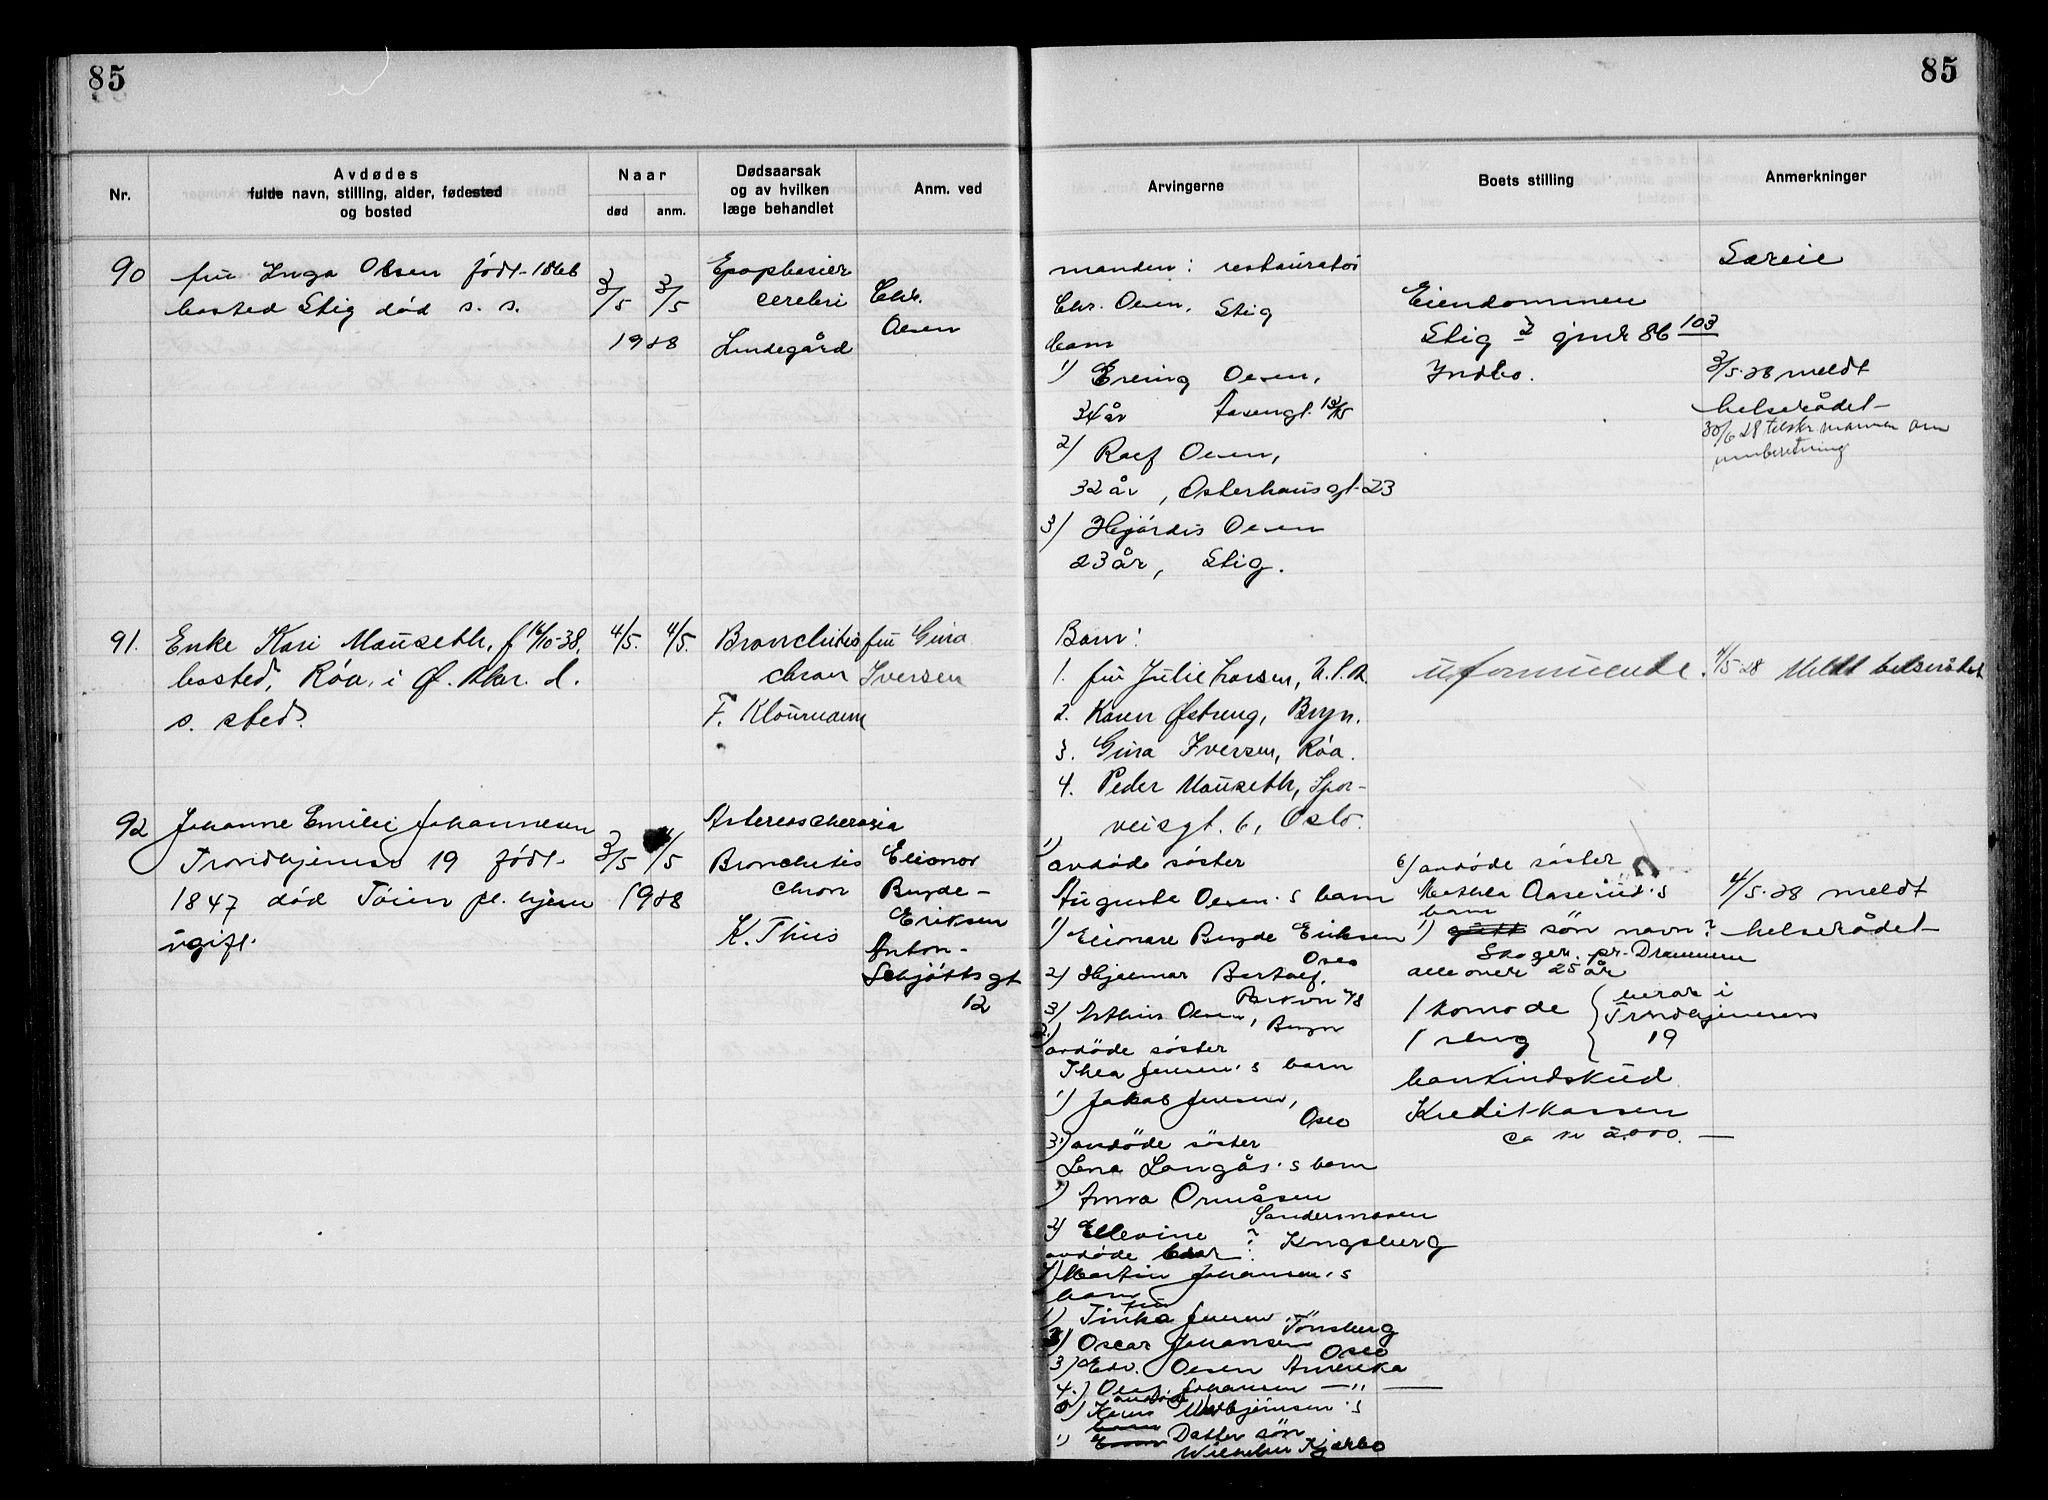 85
85
Nr.
Avdødes
fulde navn, stilling, alder, fødested
og bosted
Naar
død
anm.
Dødsaarsak
og av hvilken
læge behandlet
Anm. ved
Arvingerne
Boets stilling
Anmerkninger
90
fru Inga Olsen født 1866
bosted Stig død s. s.
3/5 3/5
1928
cerebri
Lindegård
Chr.
Olsen
manden: restauratør
Chr. Olsen, Stig
barn
1) Erling Olsen,
34 år
2) Rolf Olsen,
32 år, Osterhausgt. 23
3) Hjördis Olsen
23 år, Stig.
Eiendommen
Stig gnr 86
103
Indbo.
Særeie
3/5-28 meldt
helserådet
91.
Enke Kari Mauseth, f 16/10-38.
bosted, Røa, i Ø. Aker. d.
s. sted.
4/5. 4/5.
Bronchitis
chron
F. Klouman
fru Gina
Iversen
Barn:
1. fru Julie Larsen, U.S.A.
2. Karen Østreng, Bryn.
3. Gina Iversen, Røa.
4. Peder Mauseth, Spor-
veisgt. 6, Oslo.
uformuende.
4/5-28 Meldt helserådet
92
Johanne Emilie Johannesen
Trondhjemsv 19 født
1847 død Töien pl. hjem
ugift.
3/5 4/5
1928
Bronchitis
chron
K. Thiis
Elionor
Bugde-
Eriksen
Anton-
Schjöttsgt
12
1)
avdöde söster
Auguste Olsen's barn
1) Elionore Bugde Eriksen
Oslo
2) Hjalmar Bertolf,
3) Olsen, Bryn
2)
avdöde söster
Thea Jensen's barn
1) Jakob Jensen,
Oslo
3) avdöde söster
Lena Langås's barn
1) Anna Ormåsen
Sandermosen
2) Ellevine ? Kongsberg
avdöde bror:
4) Martin Johansen's
barn
1) fru Tinka Jensen Tönsberg
2) Oscar Johansen Oslo
3) Edv. Olsen Amerika
4.) Olaf Johansen —"—
avdöde
barn
1) Datter sön
Wilhelm Kjærbo
6) avdöde söster
Mathea Aaserud's
barn
1) gått sön navn?
Skoger. pr. Drammen
alle over 25 år
1 komode
1 seng
beror i
Trondhjemsvn
19
bankindskud
Kreditkassen
ca kr 2.000.—
4/5-28 meldt
helserådet